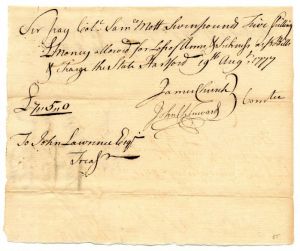 Sir pay Col. Sam. Mott Seven pound Five Shillings
Money allowed for Loss of Arms &
& Charge the State Hartford 19th Augt 1777
£7..5..0
James Church
John Chenward
Comtee
To John Lawrence Esqr
Treasr